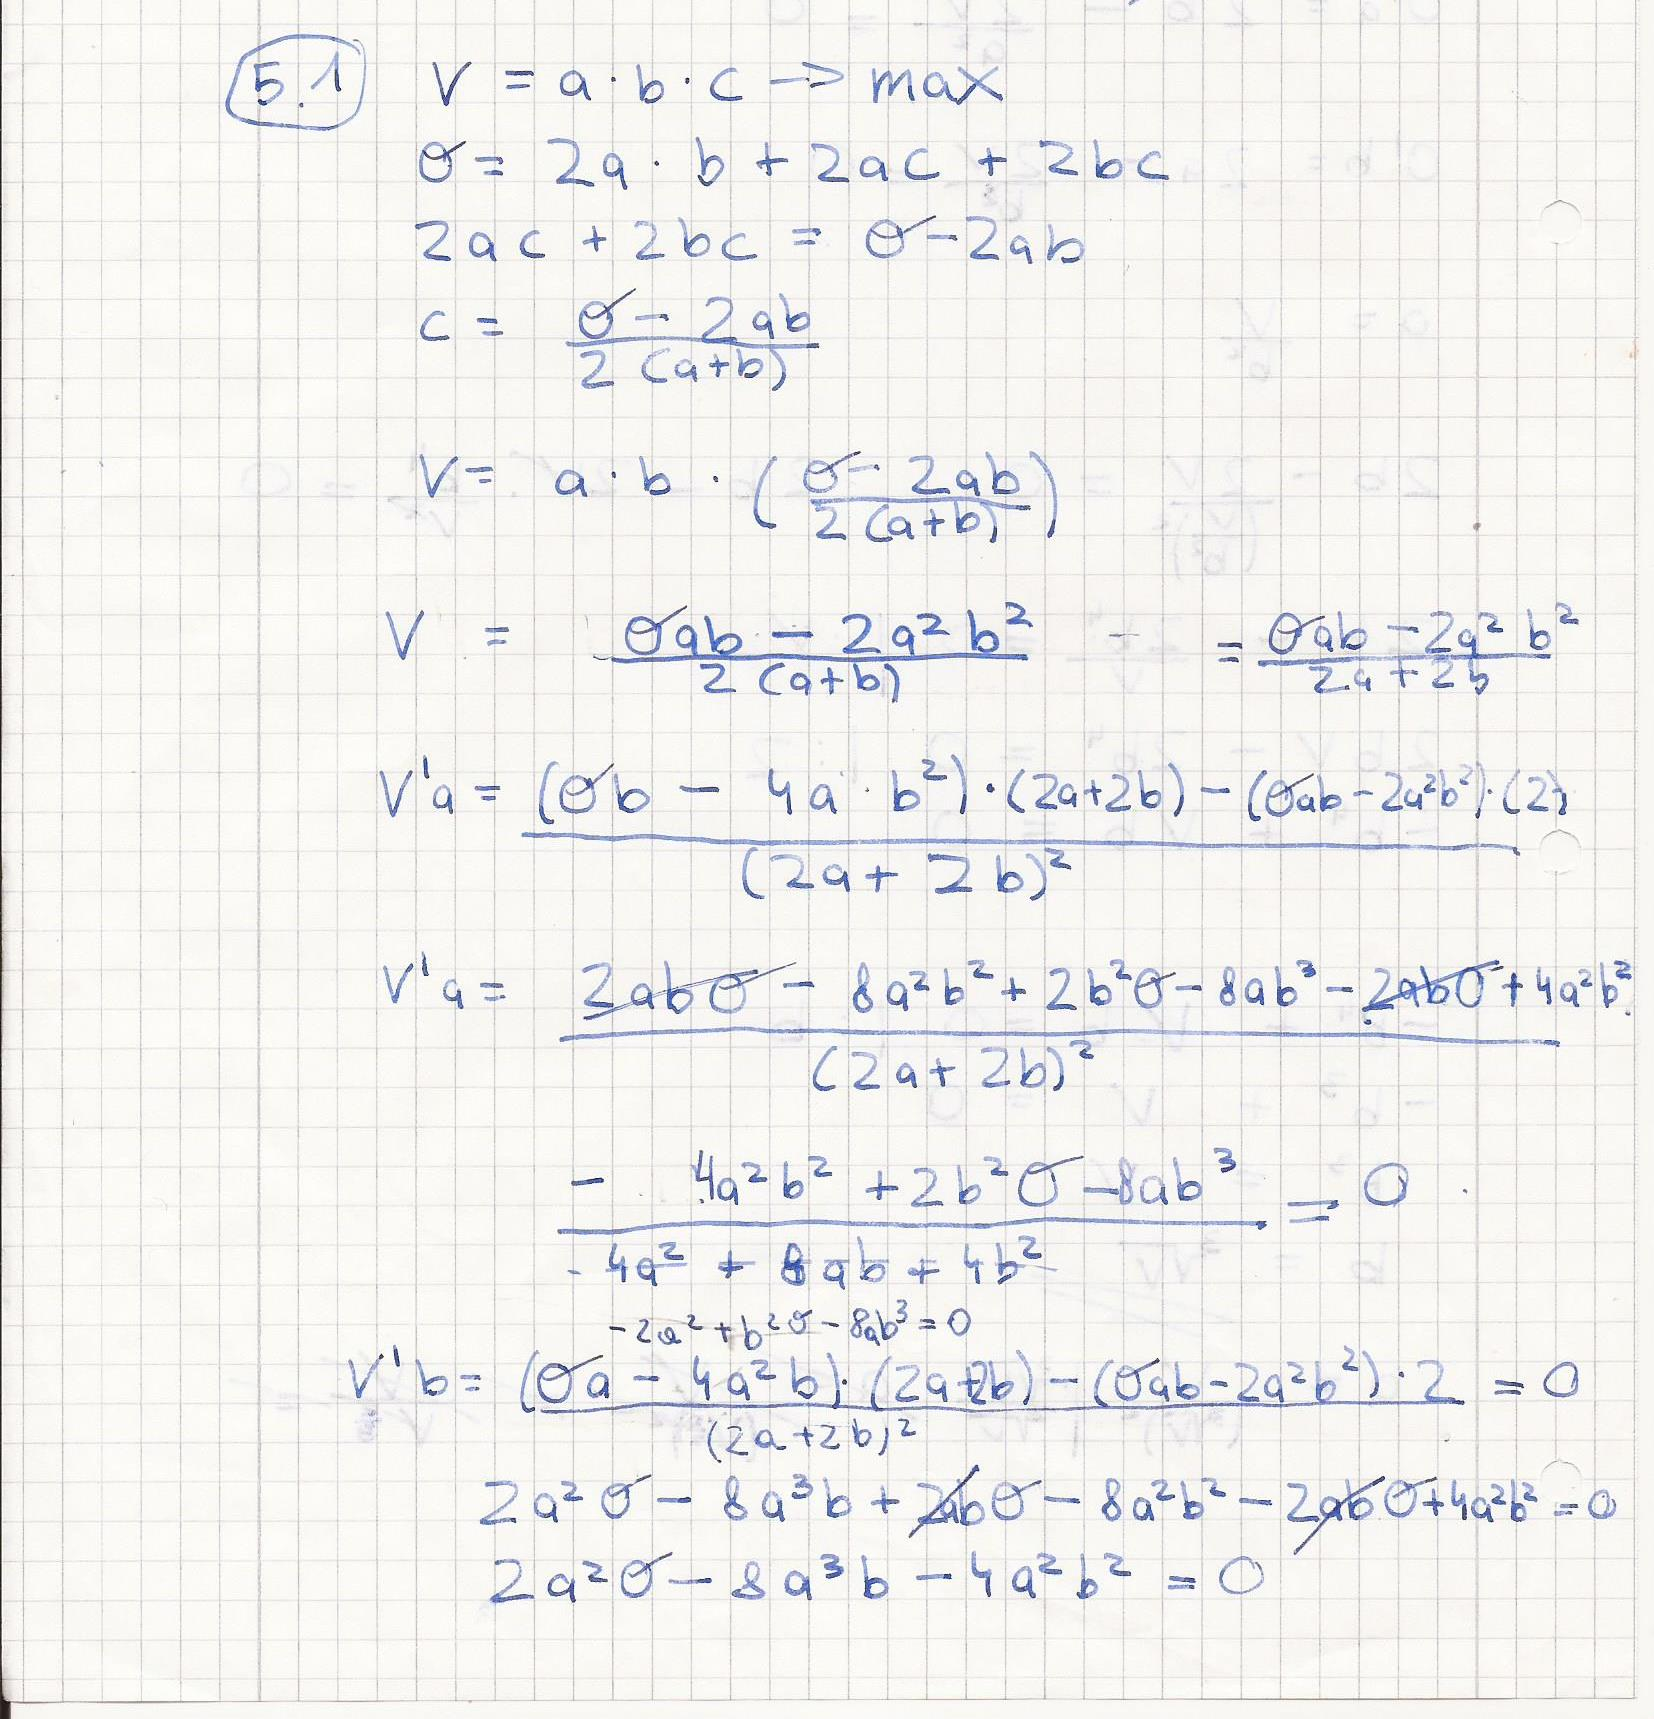 5.1 V = a · b · c → max
O = 2a · b + 2ac + 2bc
2ac + 2bc = O - 2ab
c = (O - 2ab) / (2 (a+b))
V = a · b · ((O - 2ab) / (2 (a+b)))
V = (Oab - 2a² b²) / (2 (a+b)) = (Oab - 2a² b²) / (2a + 2b)
V'a = ((Ob - 4a · b²) · (2a+2b) - (Oab - 2a²b²) · (2)) / (2a + 2b)²
V'a = (2abO - 8a²b² + 2b²O - 8ab³ - 2abO + 4a²b²) / (2a + 2b)²
(- 4a²b² + 2b²O - 8ab³) / (4a² + 8ab + 4b²) = 0
-2a² + b²O - 8ab³ = 0
V'b = ((Oa - 4a²b) · (2a+2b) - (Oab - 2a²b²) · 2) / (2a+2b)² = 0
2a²O - 8a³b + 2abO - 8a²b² - 2abO + 4a²b² = 0
2a²O - 8a³b - 4a²b² = 0